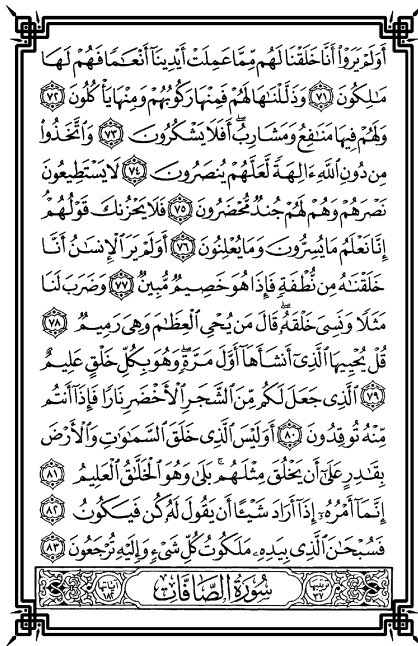 أَوَلَمْ يَرَوْا۟ أَنَّا خَلَقْنَا لَهُم مِّمَّا عَمِلَتْ أَيْدِينَآ أَنْعَـٰمًا فَهُمْ لَهَا
مَـٰلِكُونَ ٧١ وَذَلَّلْنَـٰهَا لَهُمْ فَمِنْهَا رَكُوبُهُمْ وَمِنْهَا يَأْكُلُونَ ٧٢
وَلَهُمْ فِيهَا مَنَـٰفِعُ وَمَشَارِبُ ۖ أَفَلَا يَشْكُرُونَ ٧٣ وَٱتَّخَذُوا۟
مِن دُونِ ٱللَّهِ ءَالِهَةً لَّعَلَّهُمْ يُنصَرُونَ ٧٤ لَا يَسْتَطِيعُونَ
نَصْرَهُمْ وَهُمْ لَهُمْ جُندٌ مُّحْضَرُونَ ٧٥ فَلَا يَحْزُنكَ قَوْلُهُمْ
إِنَّا نَعْلَمُ مَا يُسِرُّونَ وَمَا يُعْلِنُونَ ٧٦ أَوَلَمْ يَرَ ٱلْإِنسَـٰنُ أَنَّا
خَلَقْنَـٰهُ مِن نُّطْفَةٍ فَإِذَا هُوَ خَصِيمٌ مُّبِينٌ ٧٧ وَضَرَبَ لَنَا
مَثَلًا وَنَسِىَ خَلْقَهُۥ ۖ قَالَ مَن يُحْىِ ٱلْعِظَـٰمَ وَهِىَ رَمِيمٌ ٧٨
قُلْ يُحْيِيهَا ٱلَّذِىٓ أَنشَأَهَآ أَوَّلَ مَرَّةٍ ۖ وَهُوَ بِكُلِّ خَلْقٍ عَلِيمٌ
٧٩ ٱلَّذِى جَعَلَ لَكُم مِّنَ ٱلشَّجَرِ ٱلْأَخْضَرِ نَارًا فَإِذَآ أَنتُم
مِّنْهُ تُوقِدُونَ ٨٠ أَوَلَيْسَ ٱلَّذِى خَلَقَ ٱلسَّمَـٰوَٰتِ وَٱلْأَرْضَ
بِقَـٰدِرٍ عَلَىٰٓ أَن يَخْلُقَ مِثْلَهُم ۚ بَلَىٰ وَهُوَ ٱلْخَلَّـٰقُ ٱلْعَلِيمُ ٨١
إِنَّمَآ أَمْرُهُۥٓ إِذَآ أَرَادَ شَيْـًٔا أَن يَقُولَ لَهُۥ كُن فَيَكُونُ ٨٢
فَسُبْحَـٰنَ ٱلَّذِى بِيَدِهِۦ مَلَكُوتُ كُلِّ شَىْءٍ وَإِلَيْهِ تُرْجَعُونَ ٨٣
ترتيبها ٣٧ سُورَةُ الصَّافَّاتِ آياتها ١٨٢